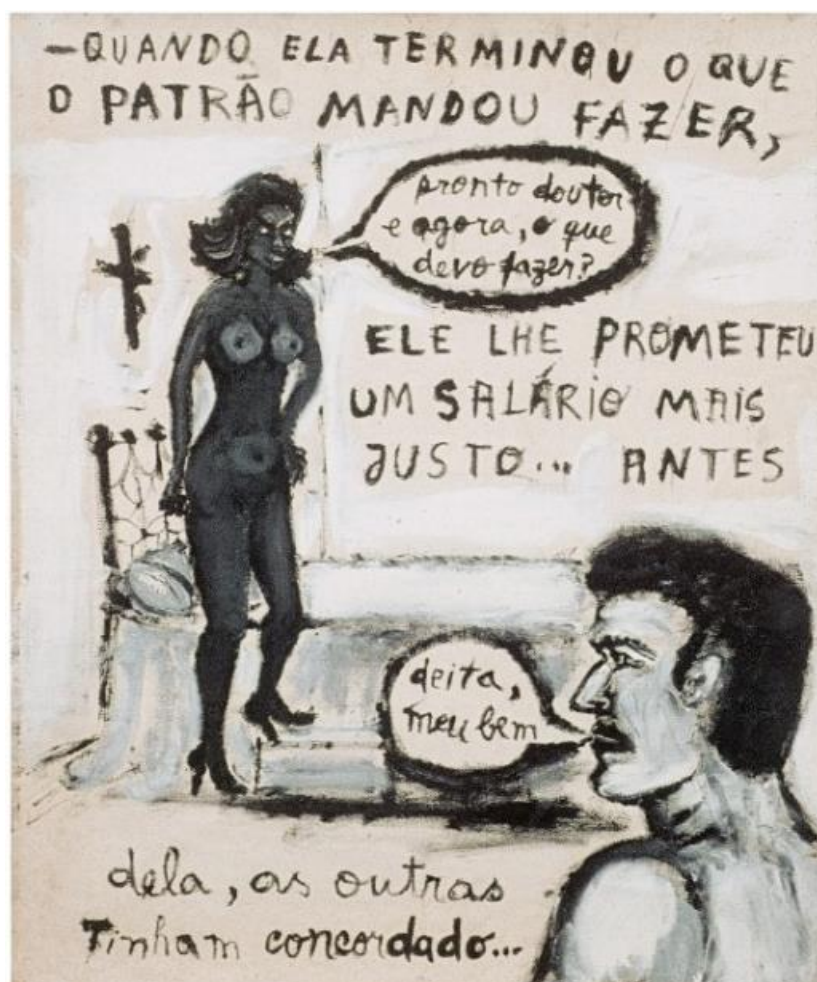 —QUANDO ELA TERMINOU O QUE
O PATRÃO MANDOU FAZER,
pronto doutor
e agora, o que
devo fazer?
ELE LHE PROMETEU
UM SALÁRIO MAIS
JUSTO... ANTES
deita,
meu bem
dela, as outras
Tinham concordado...